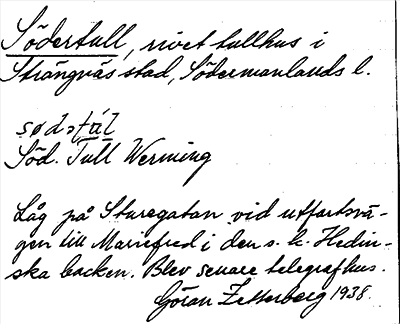 Södertull, rivet tullhus i
Strängnäs stad, Södermanlands l.
sødətál
Söd. Tull Werming
Låg på Sturegatan vid utfartsvä-
gen till Mariefred i den s. k. Hedin-
ska backen. Blev senare telegrafhus.
Göran Zetterberg 1938.